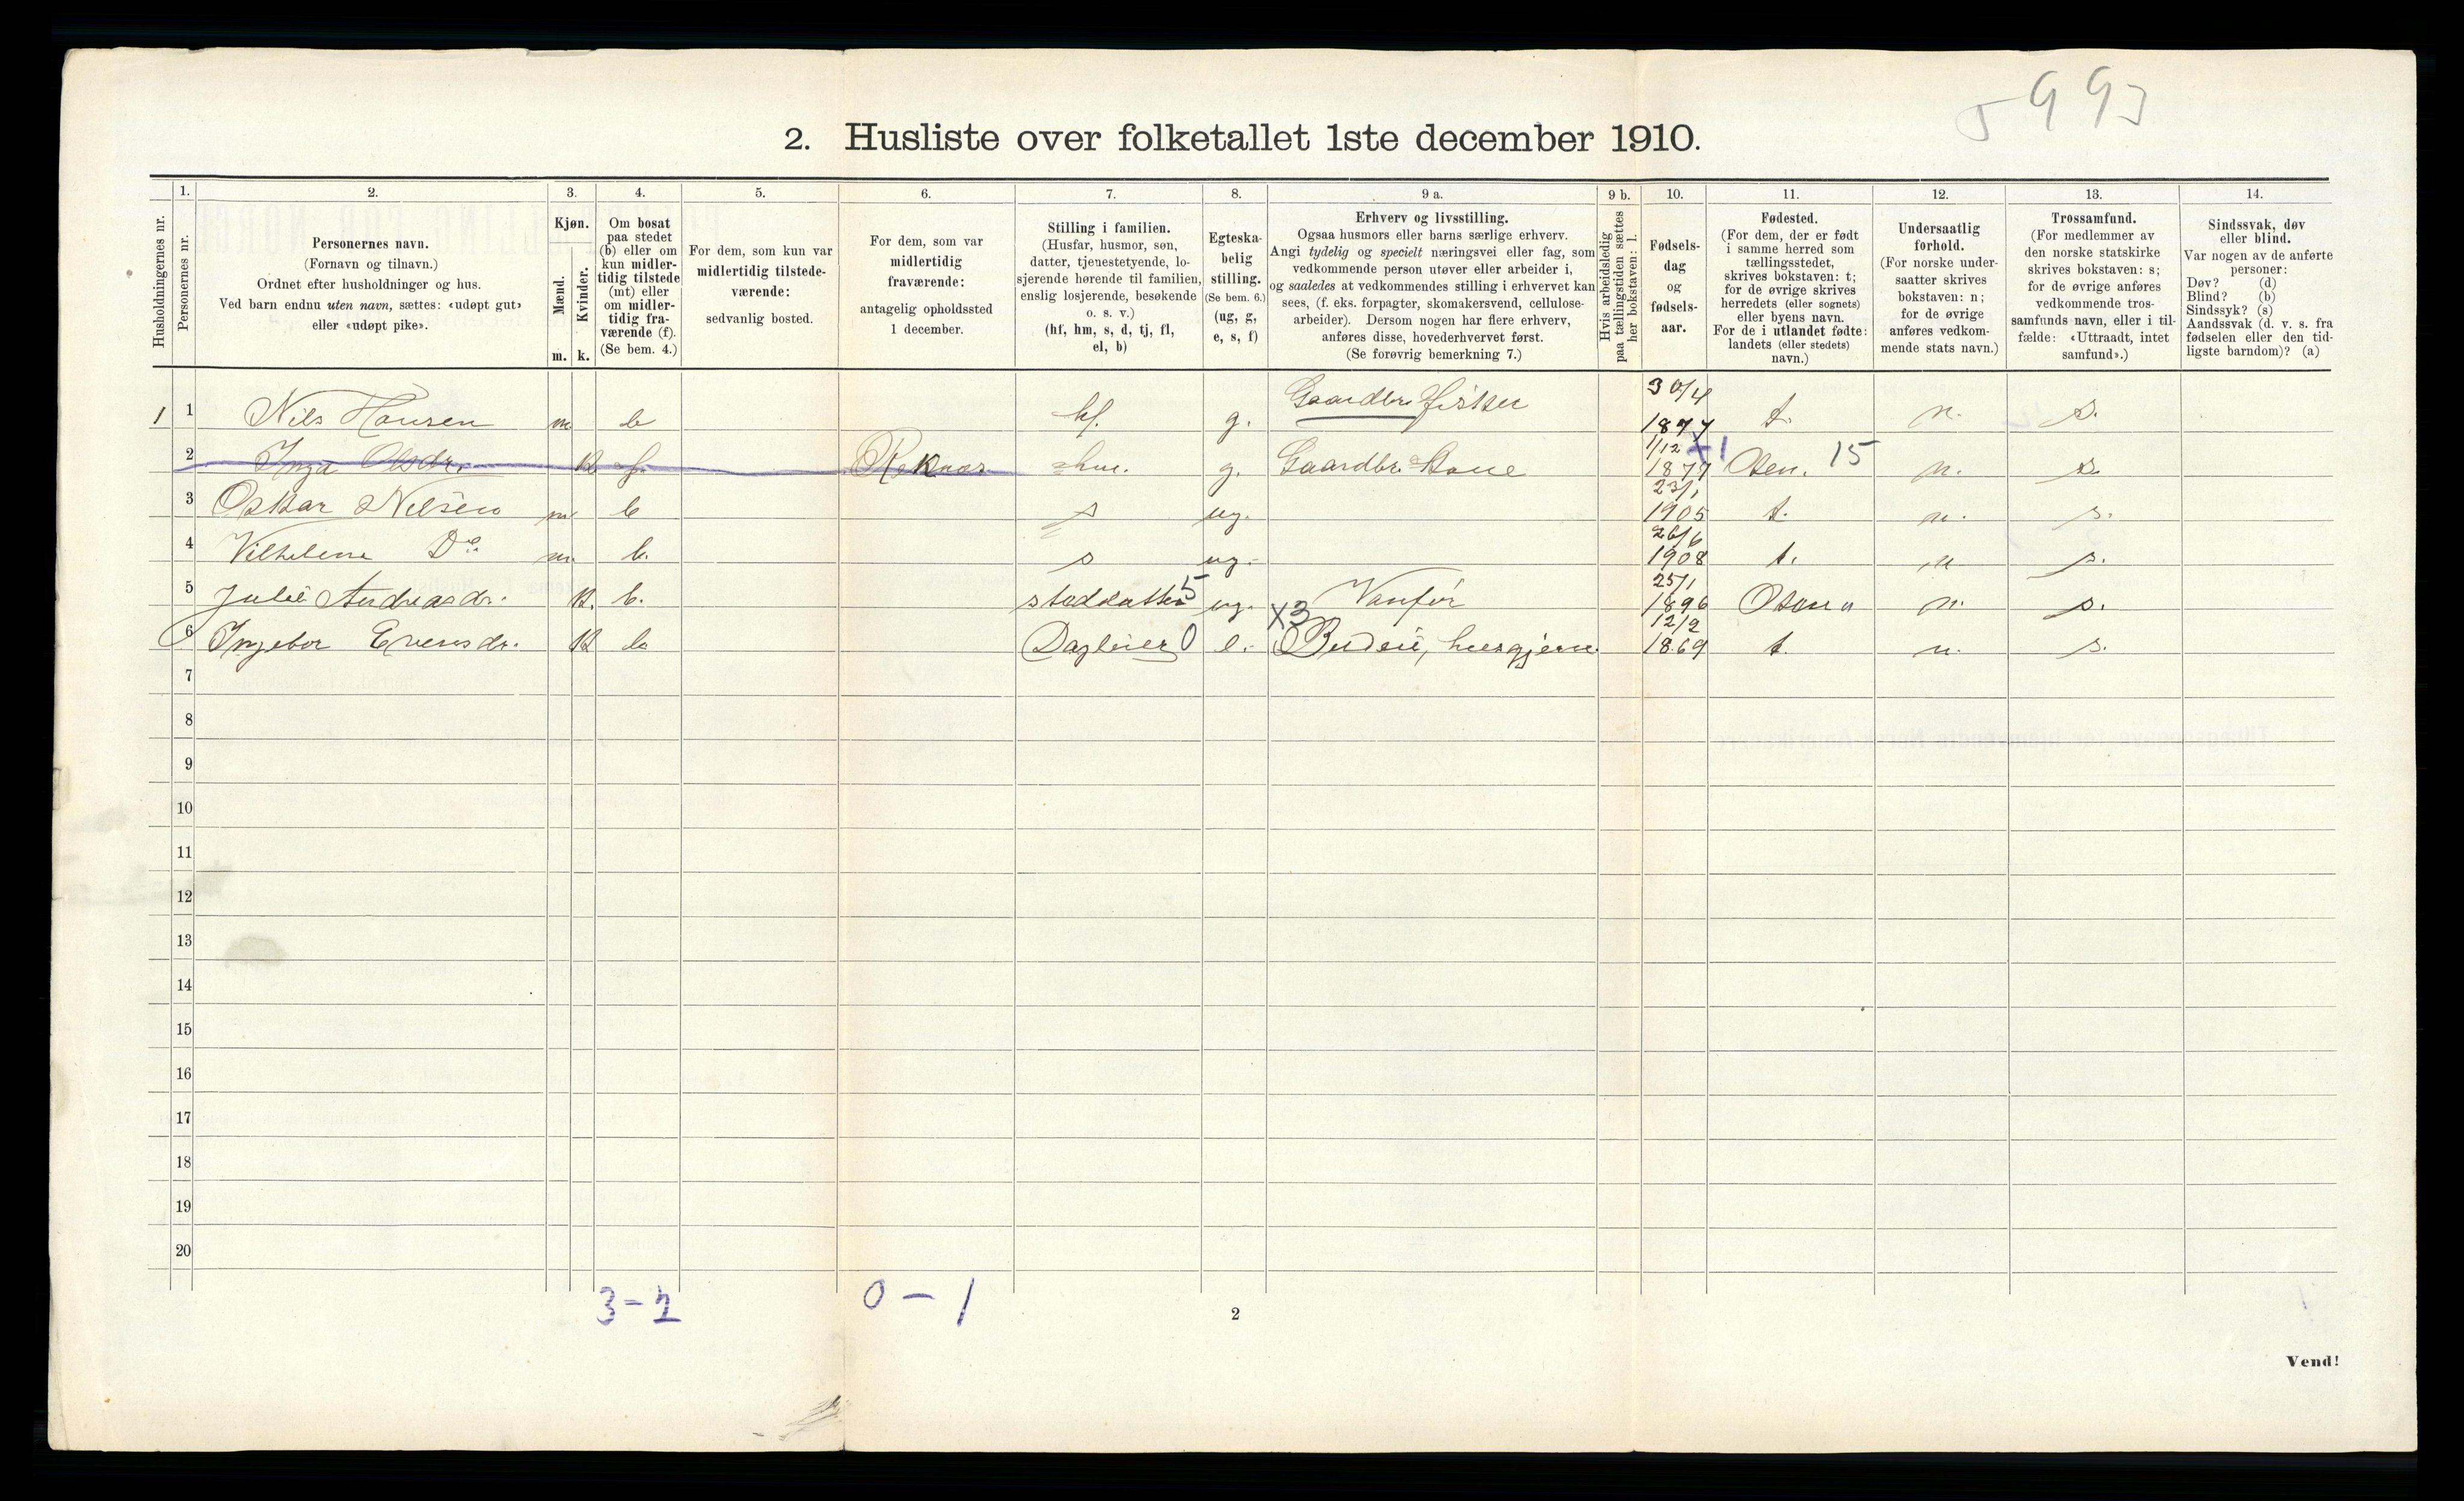 5993
2. Husliste over folketallet 1ste december 1910.
Husholdningernes nr.
1.
Personernes nr.
2.
Personernes navn.
(Fornavn og tilnavn.)
Ordnet efter husholdninger og hus.
Ved barn endnu uten navn, sættes: «udøpt gut»
eller «udøpt pike».
3.
Kjøn.
Mænd.
Kvinder.
m. k.
4.
Om bosat
paa stedet
(b) eller om
kun midler-
tidig tilstede
(mt) eller
om midler-
tidig fra-
værende (f).
(Se bem. 4.)
5.
For dem, som kun var
midlertidig tilstede-
værende:
sedvanlig bosted.
6.
For dem, som var
midlertidig
fraværende:
antagelig opholdssted
1 december.
7.
Stilling i familien.
(Husfar, husmor, søn,
datter, tjenestetyende, lo-
sjerende hørende til familien,
enslig losjerende, besøkende
o. s. v.)
(hf, hm, s, d, tj, fl,
el, b)
8.
Egteska-
belig
stilling.
(Se bem. 6.)
(ug, g,
e, s, f)
9 a.
Erhverv og livsstilling.
Ogsaa husmors eller barns særlige erhverv.
Angi tydelig og specielt næringsvei eller fag, som
vedkommende person utøver eller arbeider i,
og saaledes at vedkommendes stilling i erhvervet kan
sees, (f. eks. forpagter, skomakersvend, cellulose-
arbeider). Dersom nogen har flere erhverv,
anføres disse, hovederhvervet først.
(Se forøvrig bemerkning 7.)
9 b.
Hvis arbeidsledig
paa tællingstiden sættes
her bokstaven: l.
10.
Fødsels-
dag
og
fødsels-
aar.
11.
Fødested.
(For dem, der er født
i samme herred som
tællingsstedet,
skrives bokstaven: t;
for de øvrige skrives
herredets (eller sognets)
eller byens navn.
For de i utlandet fødte:
landets (eller stedets)
navn.)
12.
Undersaatlig
forhold.
(For norske under-
saatter skrives
bokstaven: n;
for de øvrige
anføres vedkom-
mende stats navn.)
13.
Trossamfund.
(For medlemmer av
den norske statskirke
skrives bokstaven: s;
for de øvrige anføres
vedkommende tros-
samfunds navn, eller i til-
fælde: «Uttraadt, intet
samfund».)
14.
Sindssvak, døv
eller blind.
Var nogen av de anførte
personer:
Døv? (d)
Blind? (b)
Sindssyk? (s)
Aandssvak (d. v. s. fra
fødselen eller den tid-
ligste barndom)? (a)
1 1 Nils Hansen m b hf. g. Gaardbr. fisker 30/4 1877 t. n. s.
2 Inga Olsdr. k f. Reknæs hm. g. Gaardbr. Kone 1/12 1877 +1 Osen. 15 n. s.
3 Oskar Nilsen m b s ug. 23/1 1905 t. n. s.
4 Vilhelm Do. m. b. s ug. 26/6 1908 t. n s.
5 Julie Andreasdr. k. b. steddatter 5 ug. Vanfør 25/1 1896 Osen n. s.
6 Ingebor Evensdr. k b Dagleier 0 e. x3 Budeie, husgjern 12/2 1869 t. n. s.
7
8
9
10
11
12
13
14
15
16
17
18
19
20
3 - 2
0 - 1
2
Vend!